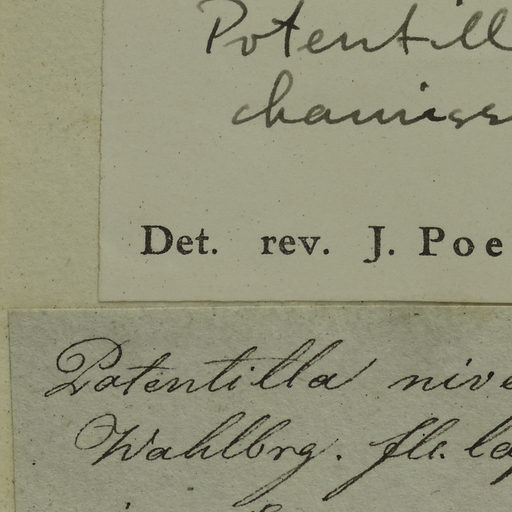 Potentill
chamiss
Det. rev. J. Poe
Potentilla nive
Wahlbrg. fl. la